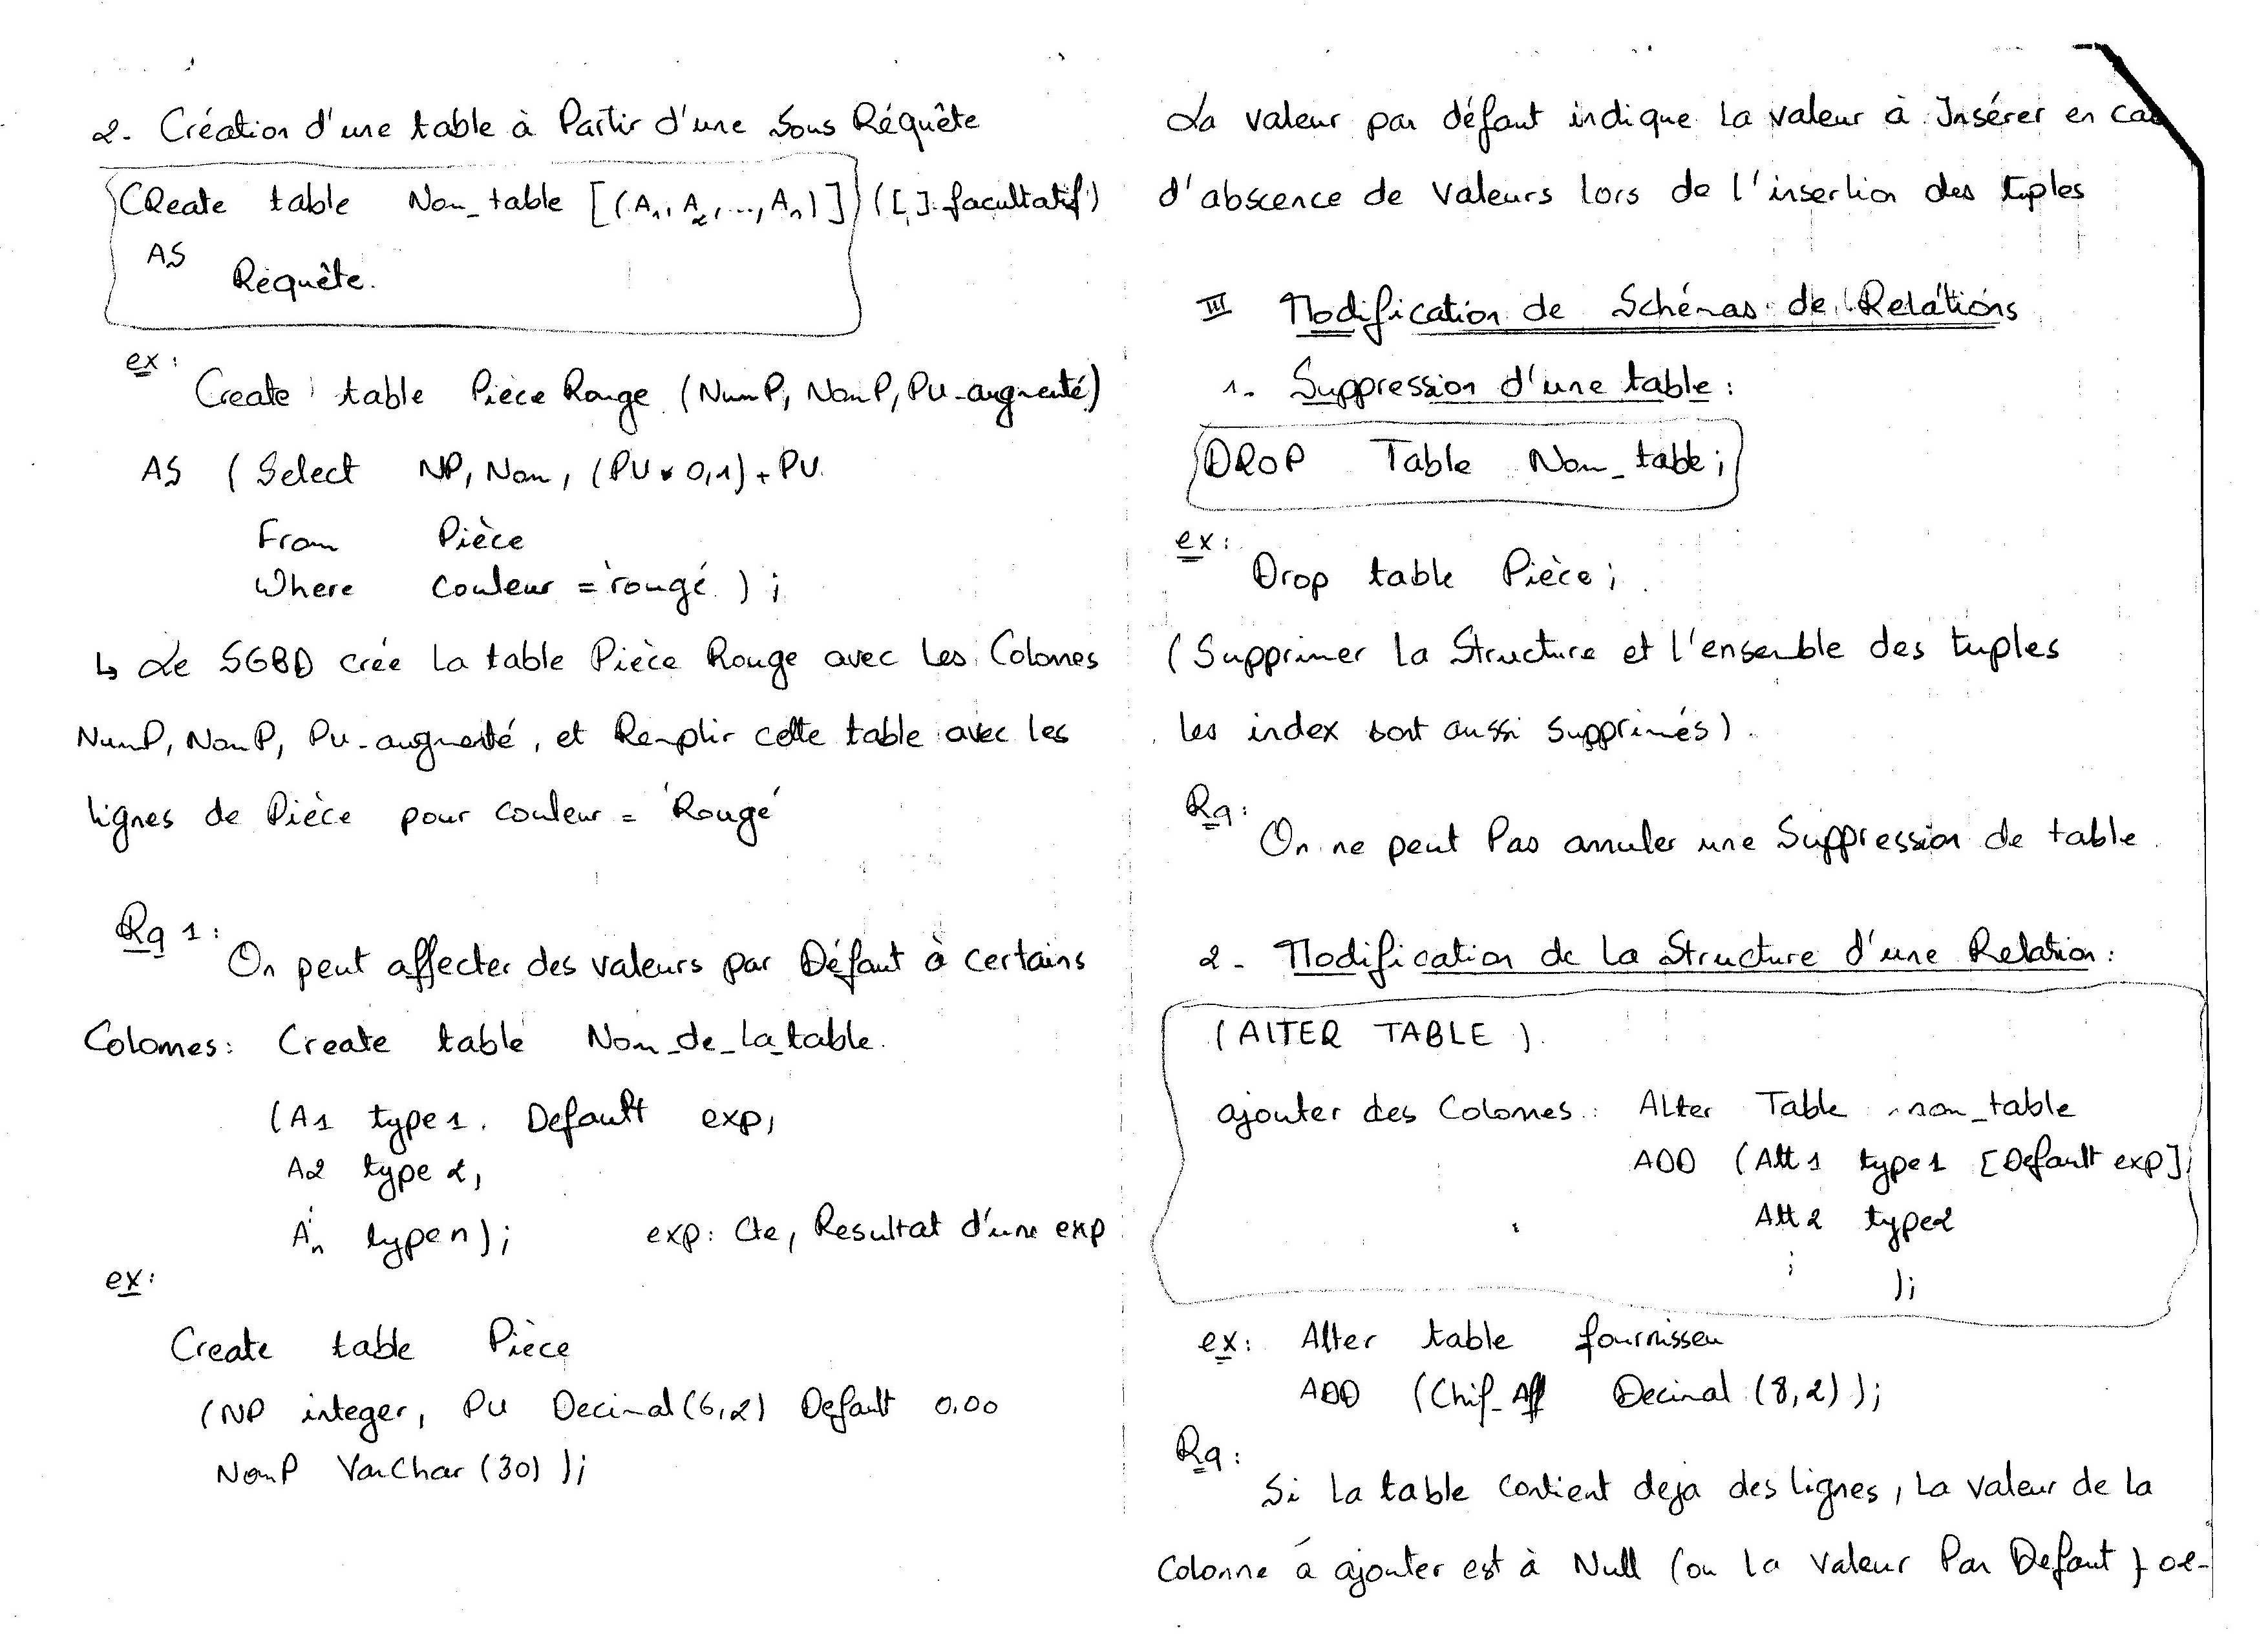 2. Création d'une table à Partir d'une Sous Réquête
CReate table Nom_table [(A1, A2, ..., An)] ([ ]: facultatif)
AS
Requête.
ex:
Create table PièceRouge (NumP, NomP, PU_augmenté)
AS ( Select NP, Nom, (PU * 0,1) + PU
From Pièce
Where Couleur = 'rouge' ) ;
↳ Le SGBD crée la table Pièce Rouge avec les Colones
NumP, NomP, PU_augmenté, et Remplir cette table avec les
lignes de Pièce pour couleur = 'Rouge'
Rq 1:
On peut affecter des valeurs par Défaut à certains
Colomes: Create table Nom_de_la_table.
(A1 type1. Default exp,
A2 type2,
:
An typen); exp: Cte, Resultat d'une exp
ex:
Create table Pièce
(NP integer, PU Decimal(6,2) Default 0.00
NomP VarChar(30) );
La valeur par défaut indique la valeur à Insérer en cas
d'abscence de valeurs lors de l'insertion des tuples
III Modification de Schémas de Relations
1. Suppression d'une table :
DROP Table Nom_table;
ex:
Drop table Pièce;
(Supprimer la Structure et l'ensemble des tuples
les index sont aussi supprimés).
Rq:
On ne peut Pas annuler une Suppression de table
2. Modification de la Structure d'une Relation:
(AlTER TABLE )
ajouter des Colomes: Alter Table nom_table
ADD (Att1 type1 [Default exp],
Att2 type2
:
);
ex: Alter table fournisseu
ADD (Chif_Aff Decimal (8,2) );
Rq:
Si la table contient deja des lignes, la valeur de la
Colonne à ajouter est à Null (ou la valeur Par Defaut)